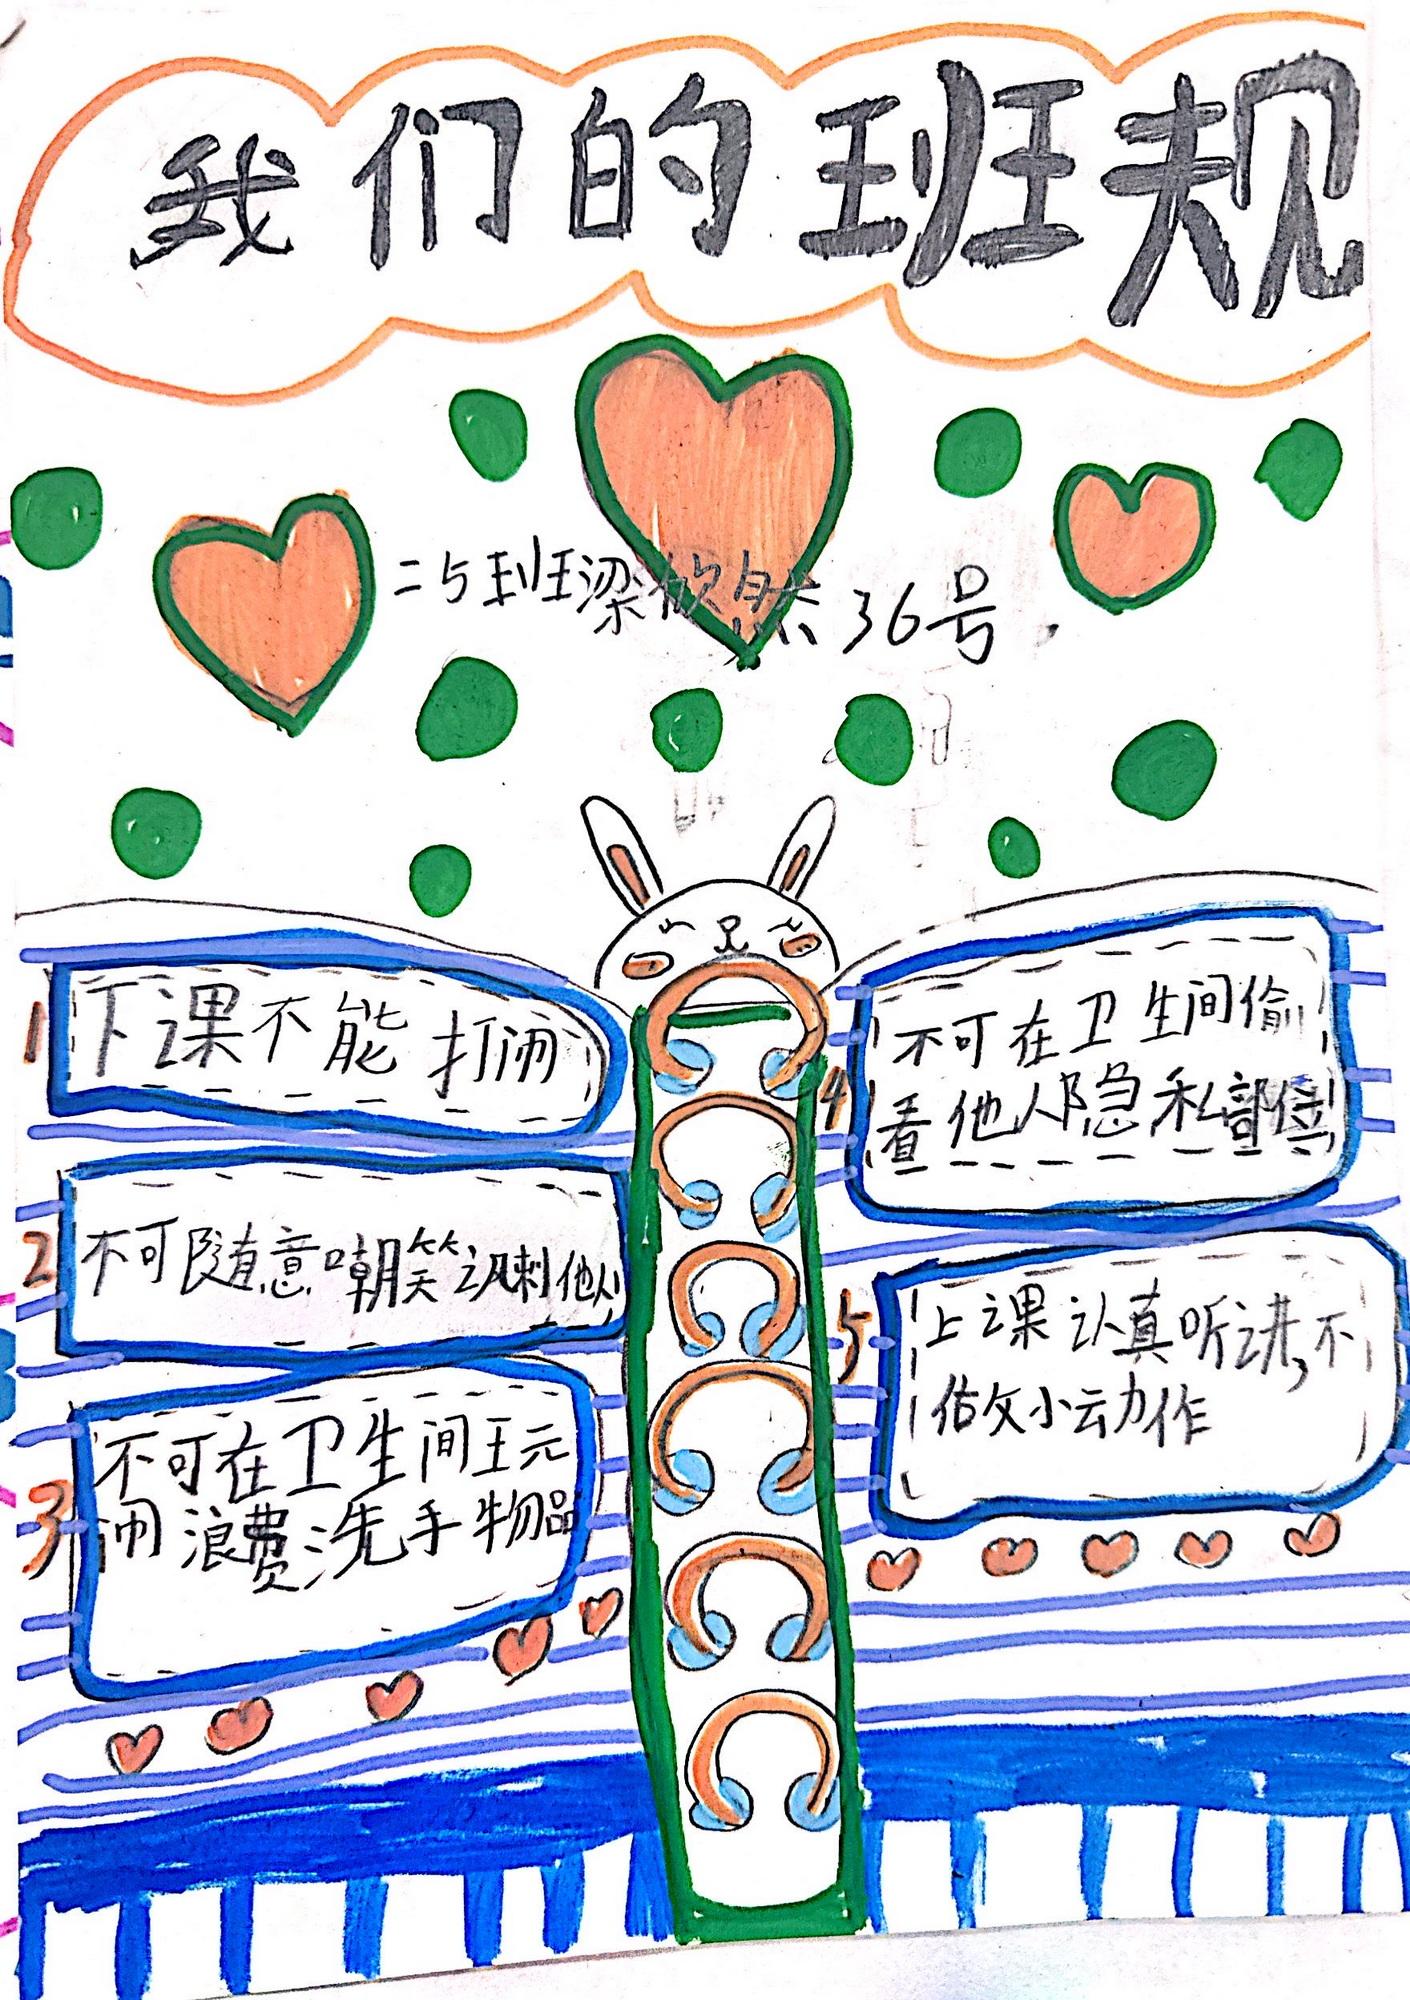 我们的班规
二5班梁欣然36号.
1
下课不能打闹
2
不可随意嘲笑讽刺他人
3
不可在卫生间玩
闹浪费洗手物品
4
不可在卫生间偷
看他人隐私部位
5
上课认真听讲,不
做小动作